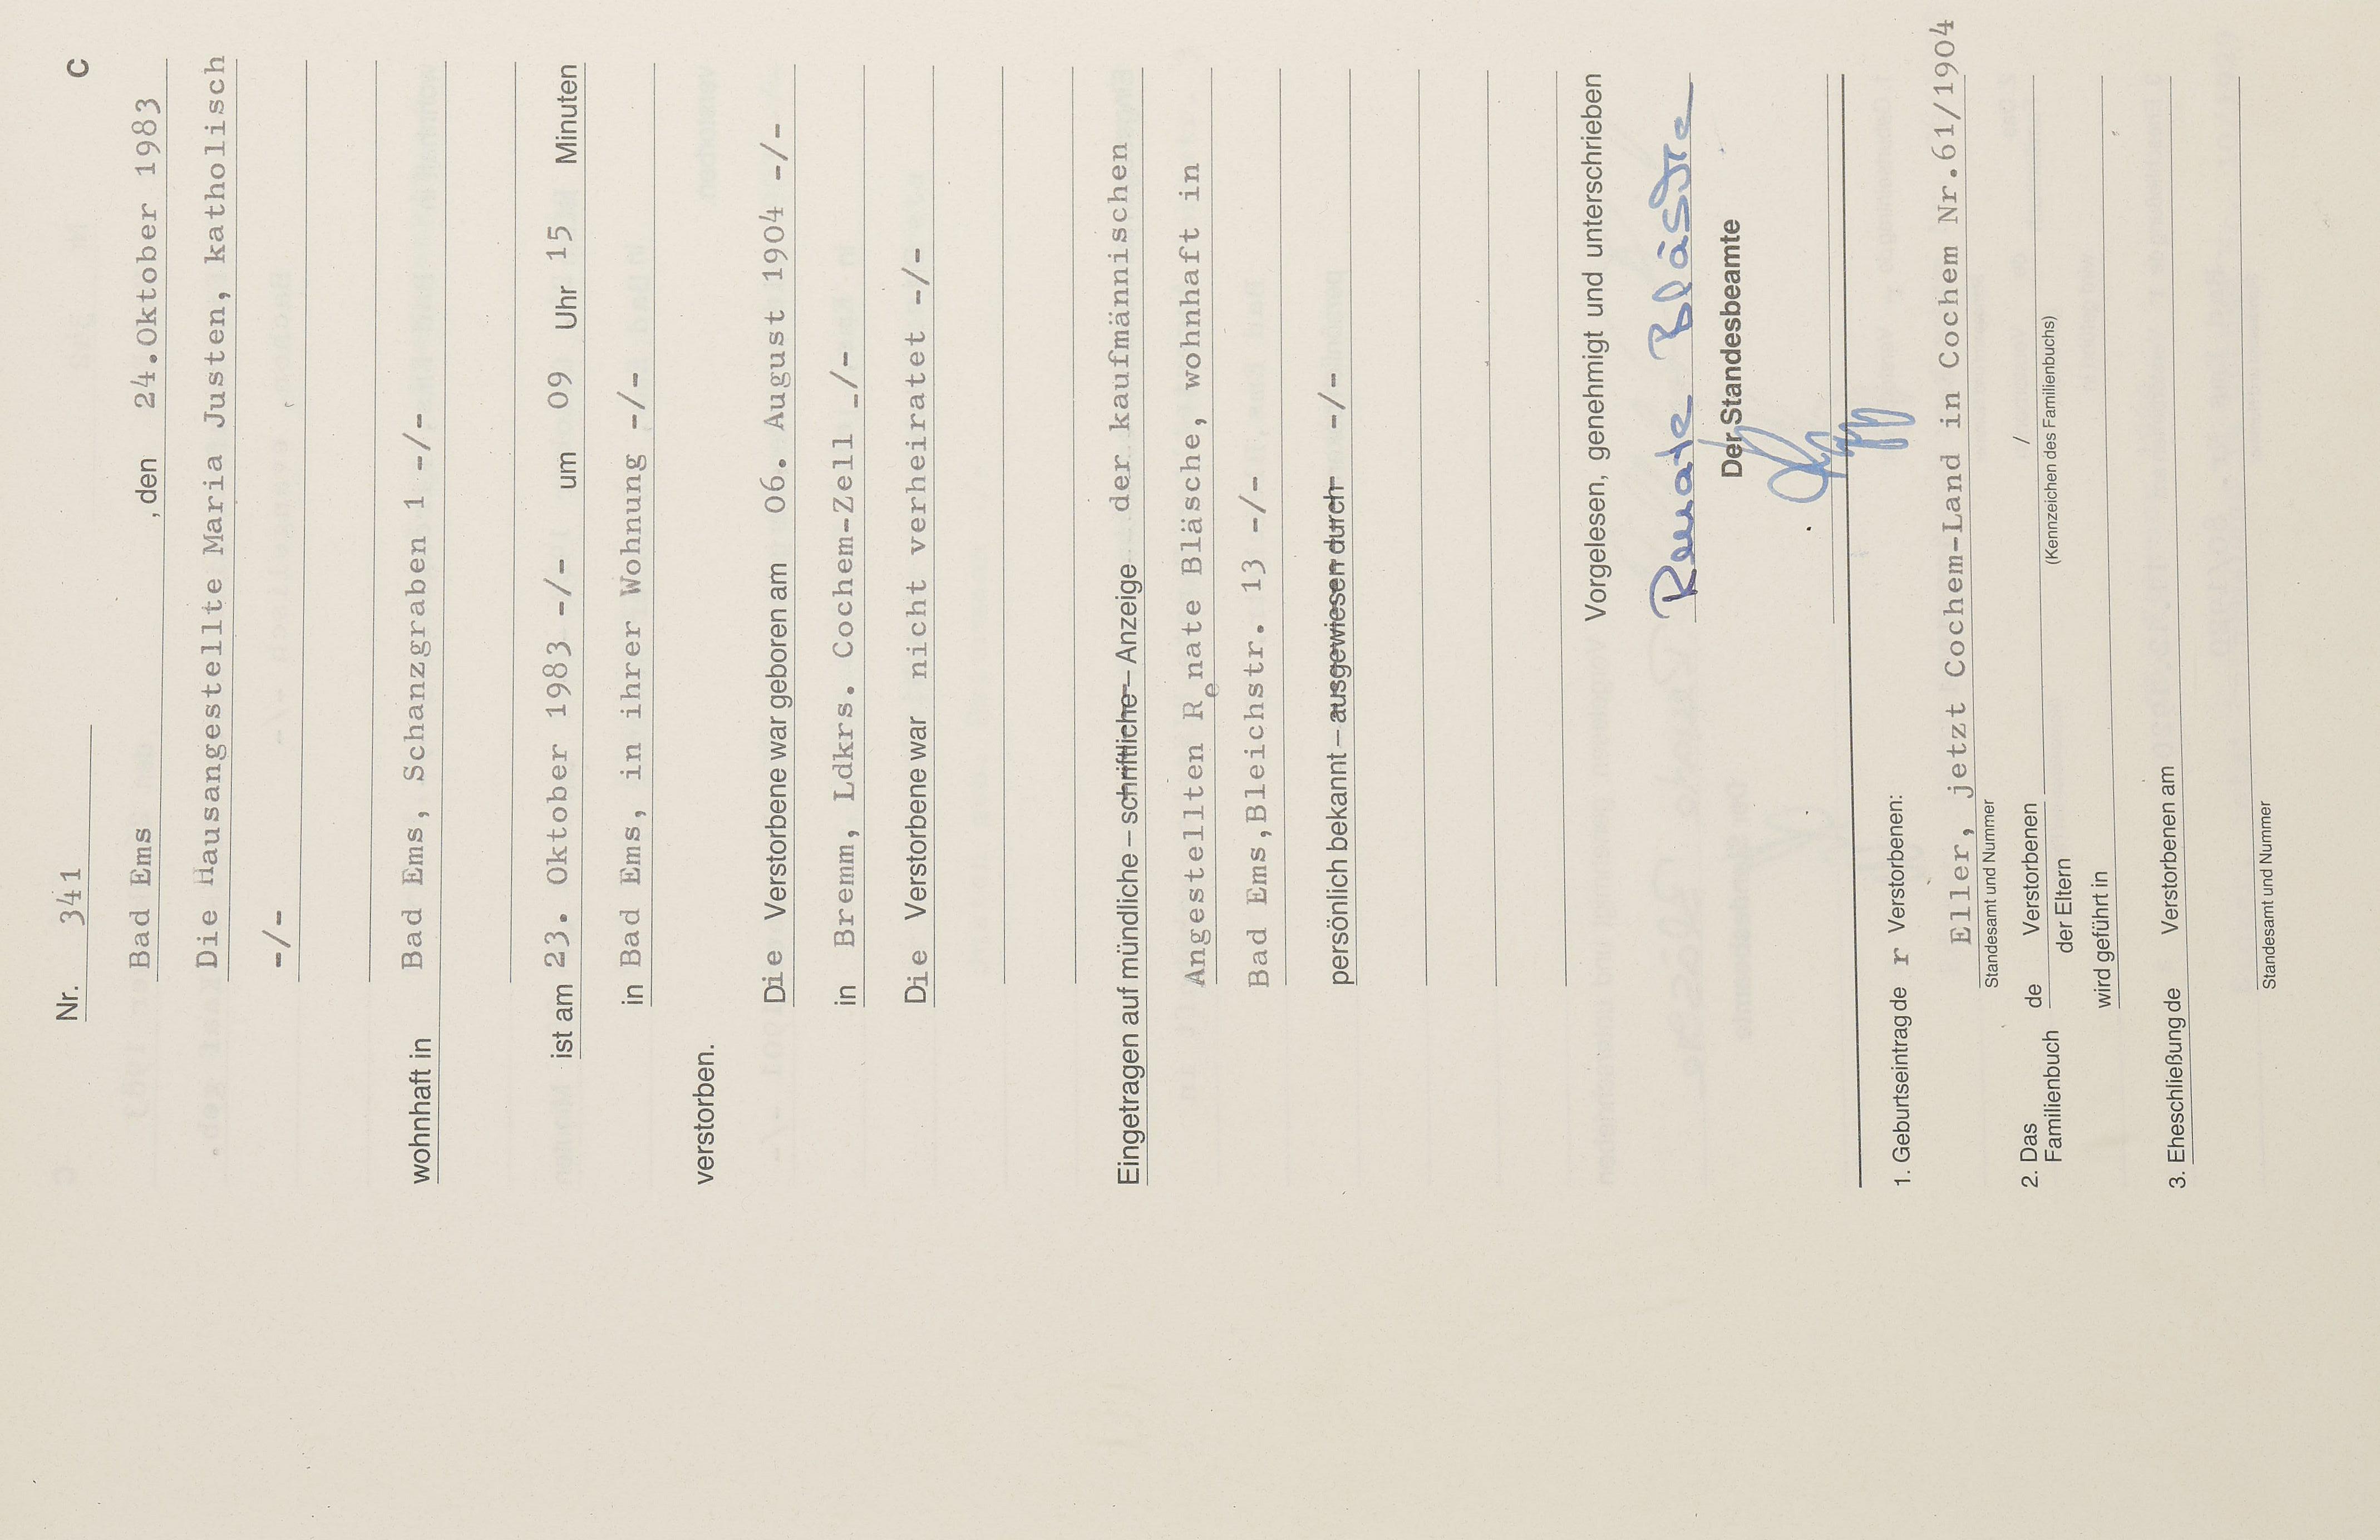 C
Nr. 341
Bad Ems, den 24.Oktober 1983
Die Hausangestellte Maria Justen, katholisch
-/-
wohnhaft in Bad Ems, Schanzgraben 1 -/-
ist am 23. Oktober 1983 -/- um 09 Uhr 15 Minuten
in Bad Ems, in ihrer Wohnung -/-
verstorben.
Die Verstorbene war geboren am 06. August 1904 -/-
in Bremm, Ldkrs. Cochem-Zell -/-
Die Verstorbene war nicht verheiratet -/-
Eingetragen auf mündliche – schriftliche – Anzeige der kaufmännischen
Angestellten Renate Bläsche, wohnhaft in
Bad Ems,Bleichstr. 13 -/-
persönlich bekannt – ausgewiesen durch -/-
Vorgelesen, genehmigt und unterschrieben
Renate Bläsche
Der Standesbeamte
1. Geburtseintrag de r Verstorbenen:
Eller, jetzt Cochem-Land in Cochem Nr.61/1904
Standesamt und Nummer
2. Das Familienbuch de Verstorbenen /
der Eltern (Kennzeichen des Familienbuchs)
wird geführt in
3. Eheschließung de Verstorbenen am
Standesamt und Nummer